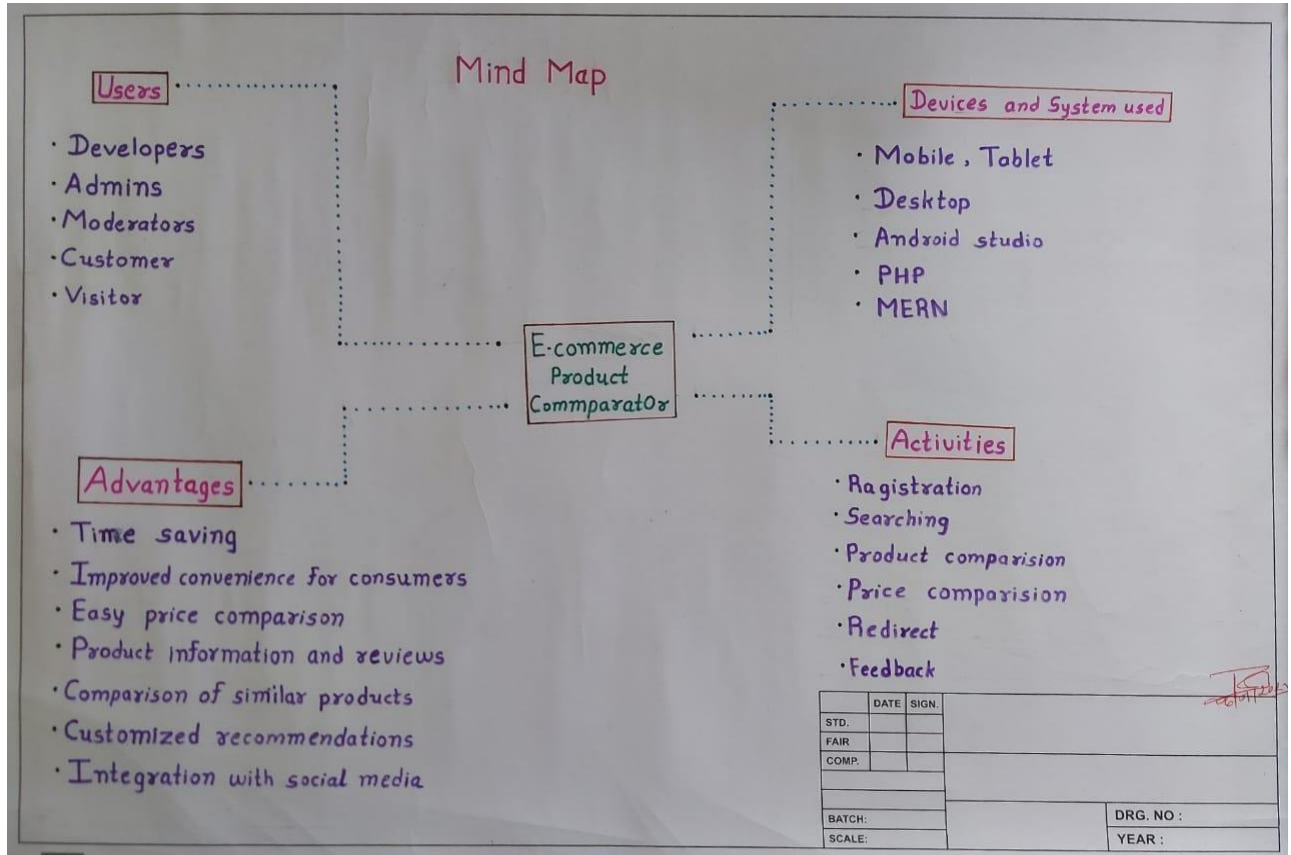 Mind Map
Users
· Developers
· Admins
· Moderators
· Customer
· Visitor
Devices and System used
· Mobile, Tablet
· Desktop
· Android studio
· PHP
· MERN
E-commerce
Product
CommparatOr
Advantages
· Time saving
· Improved convenience for consumers
· Easy price comparison
· Product information and reviews
· Comparison of similar products
· Customized recommendations
· Integration with social media
Activities
· Ragistration
· Searching
· Product comparision
· Price comparision
· Redirect
· Feedback
DATE SIGN.
STD.
FAIR
COMP.
BATCH:
SCALE:
DRG. NO :
YEAR :